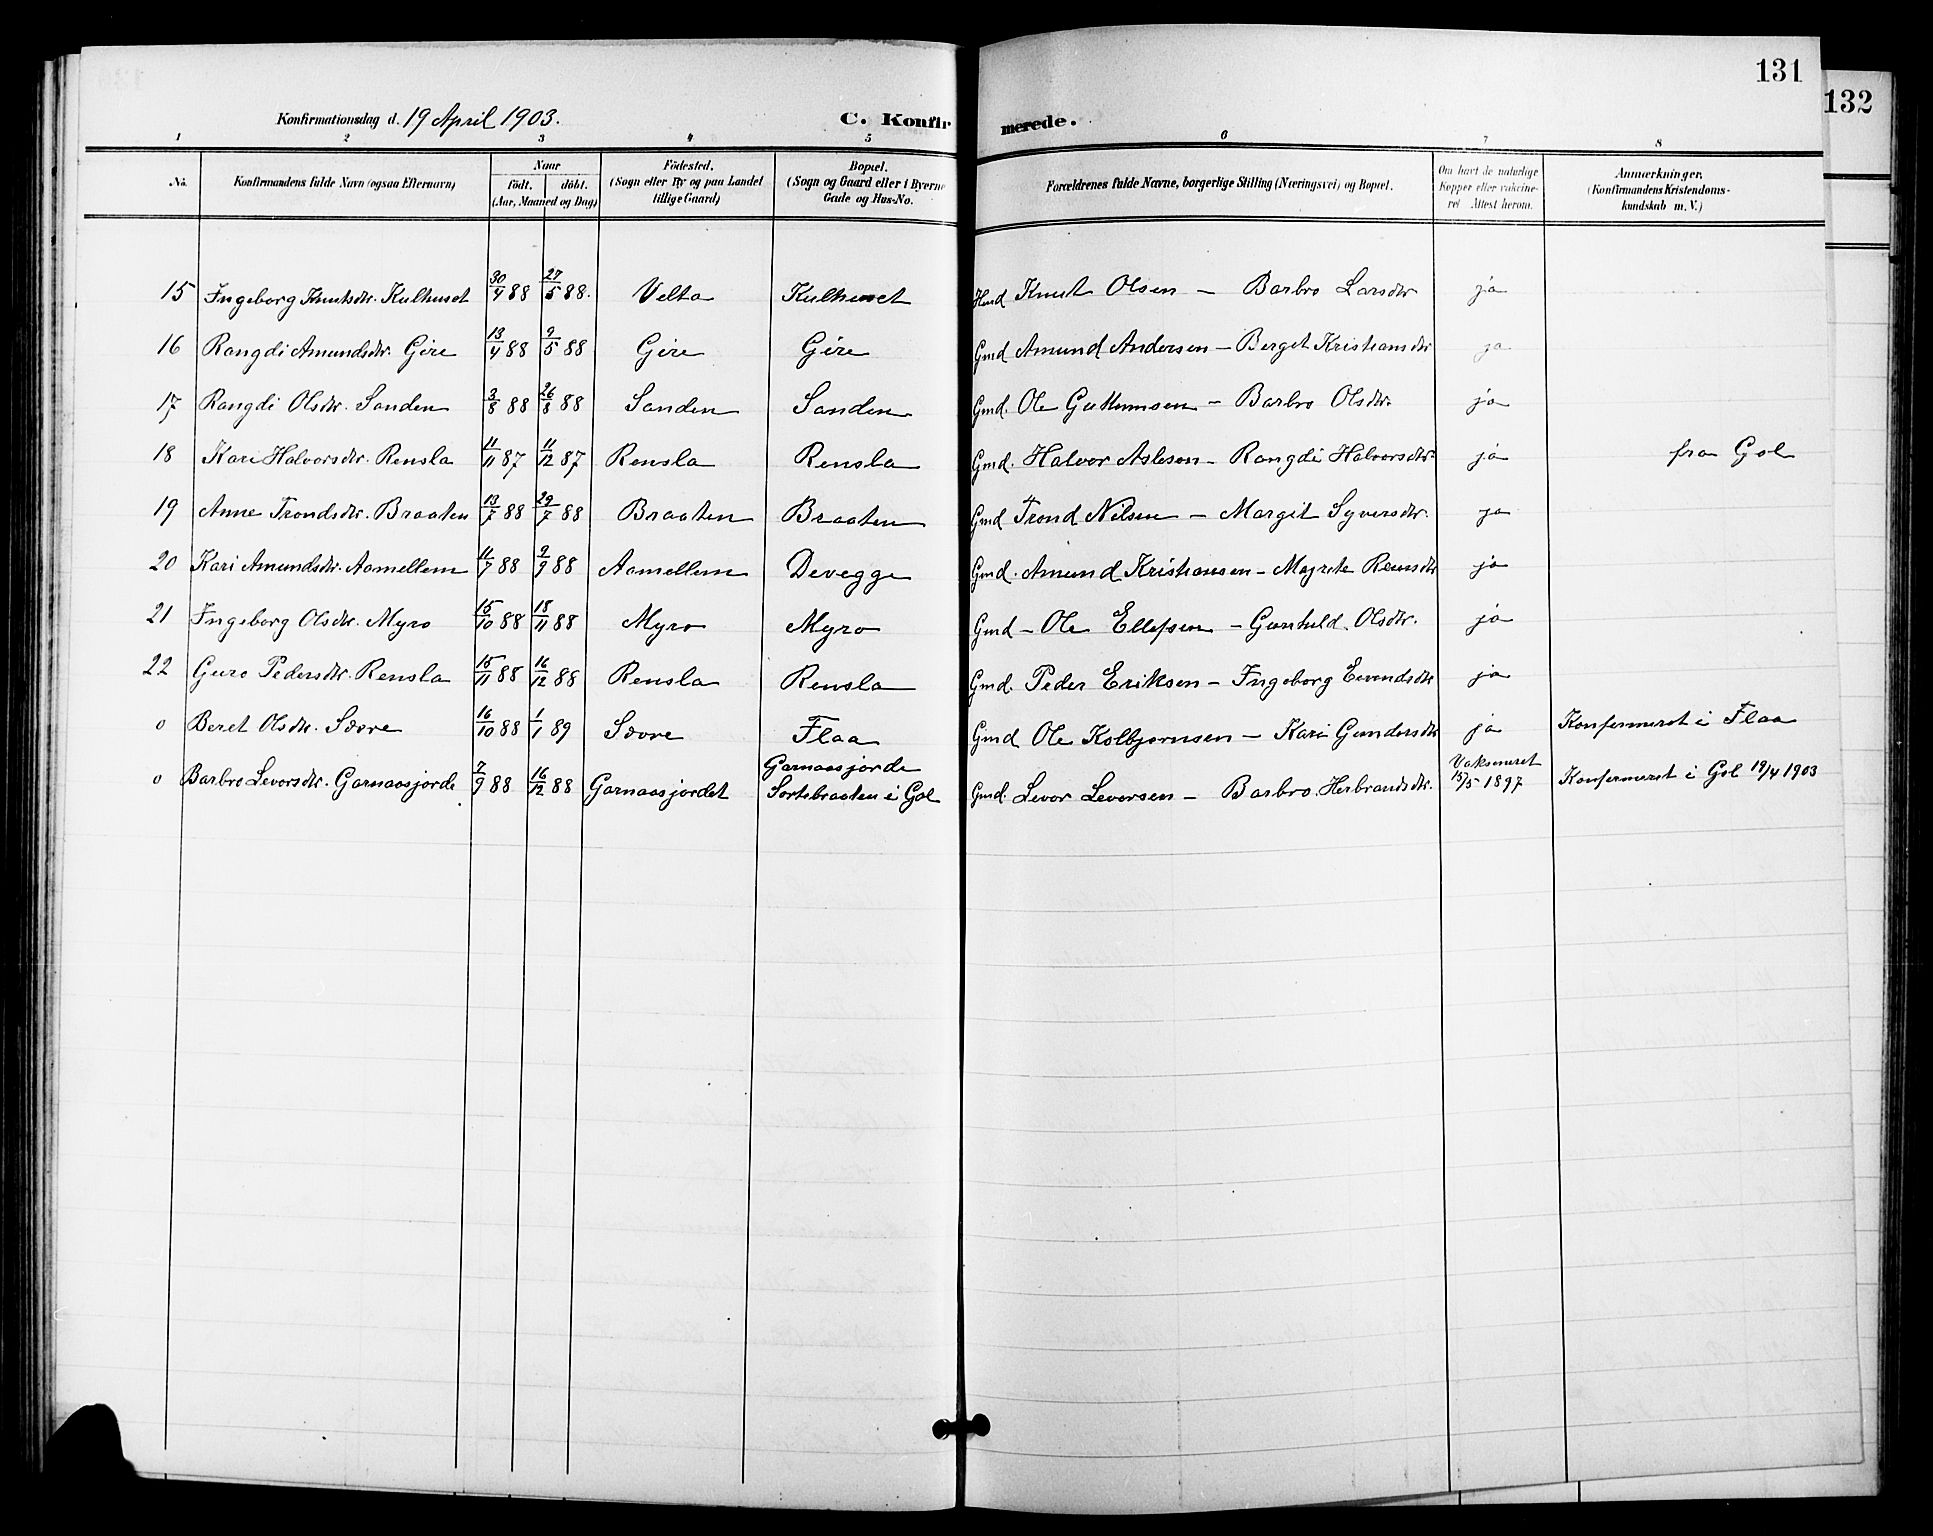 131
132
Konfirmationsdag d. 19 April 1903.
C. Konfir
merede.
1 2 3 4 5 6 7 8
No. Konfirmandens fulde Navn (ogsaa Efternavn) Naar födt. döbt. (Aar, Maaned og Dag) Födested. (Sogn eller By og paa Landet tillige Gaard) Bopæl. (Sogn og Gaard eller i Byerne Gade og Hus-No. Forældrenes fulde Navne, borgerlige Stilling (Næringsvei) og Bopæl. Om havt de naturlige Kopper eller vakcineret Attest herom. Anmærkninger, (Konfirmandens Kristendomskundskab m. V.)
15 Ingeborg Knutsdtr. Kulhuset 30/4 88 27/5 88. Velta Kulhuset Hmd Knut Olsen – Barbro Larsdtr ja
16 Rangdi Amundsdtr. Gire 13/4 88 9/5 88 Gire Gire Gmd Amund Andersen – Berget Kristiansdtr ja
17 Rangdi Olsdtr. Sanden 3/8 88 26/8 88 Sanden Sanden Gmd. Ole Guttumsen – Barbro Olsdtr. ja
18 Kari Halvorsdtr. Rensla 11/11 87 11/12 87 Rensla Rensla Gmd. Halvor Aslesen – Rangdi Halvorsdtr ja fra Gol
19 Anne Trondsdtr. Braaten 13/7 88 29/7 88 Braaten Braaten Gmd Trond Nilsen – Margit Syversdtr. ja
20 Kari Amundsdtr. Aamellem 11/7 88 9/9 88 Aamellem Devegge Gmd. Amund Kristiansen – Magrete ja
21 Ingeborg Olsdtr. Myro 15/10 88 18/11 88 Myro Myro Gmd – Ole Ellefsen – Gunhild Olsdtr. ja
22 Guro Pedersdtr. Rensla 15/11 88 16/12 88 Rensla Rensla Gmd. Peder Eriksen – Ingeborg Eivendsdtr ja
0 Beret Olsdtr. Sævre 16/10 88 1/1 89 Sævre Flaa Gmd Ole Kolbjørnsen – Kari Gundersdtr ja Konfermeret i Flaa
0 Barbro Levorsdtr. Garnaasjorde 7/9 88 16/12 88 Garnaasjordet Garnaasjorde Sortebraaten i Gol Gmd. Levor Levorsen – Barbro Herbrandsdtr. Vaksineret 15/5 1897 Konfermeret i Gol 19/4 1903